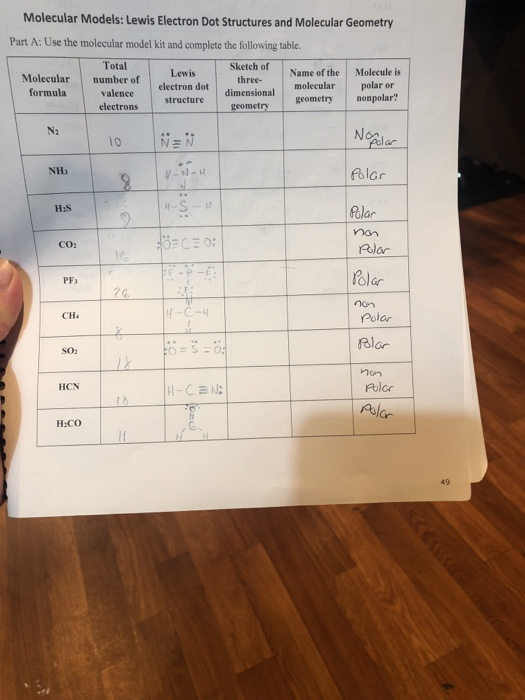 Molecular Models: Lewis Electron Dot Structures and Molecular Geometry
Part A: Use the molecular model kit and complete the following table.
Molecular formula | Total number of valence electrons | Lewis electron dot structure | Sketch of three-dimensional geometry | Name of the molecular geometry | Molecule is polar or nonpolar?
N₂ 10 N≡N Non polar
NH₃ 8 H-N-H H Polar
H₂S H-S-H Polar
CO₂ 16 non Polar
PF₃ 26 Polar
CH₄ 8 H-C-H non Polar
SO₂ 18 :O=S=O: Polar
HCN 10 H-C≡N: non Polar
H₂CO 11 C H H Polar
49